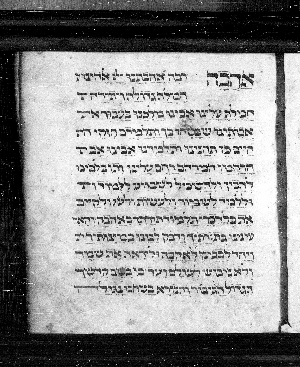 אהבה רבה אהבתנו יי אלהינו
חמלה גדולה ויתירה
חמלת עלינו אבינו מלכנו בעבור
אבותינו שבטחו בך ותלמדם חוקי
חיים כן תחננו אבינו אב
הרחמן המרחם רחם עלינו ותן בלבנו
להבין ולהשכיל לשמוע ללמוד
וללמד לשמור ולעשות ולקיים
את כל דברי תלמוד תורתך באהבה והאר
עינינו בתורתך ודבק לבנו במצותיך
ויחד לבבנו לאהבה וליראה את שמך
ולא נבוש לעולם ועד כי בשם קדשך
הגדול הגבור והנורא בטחנו נגילה